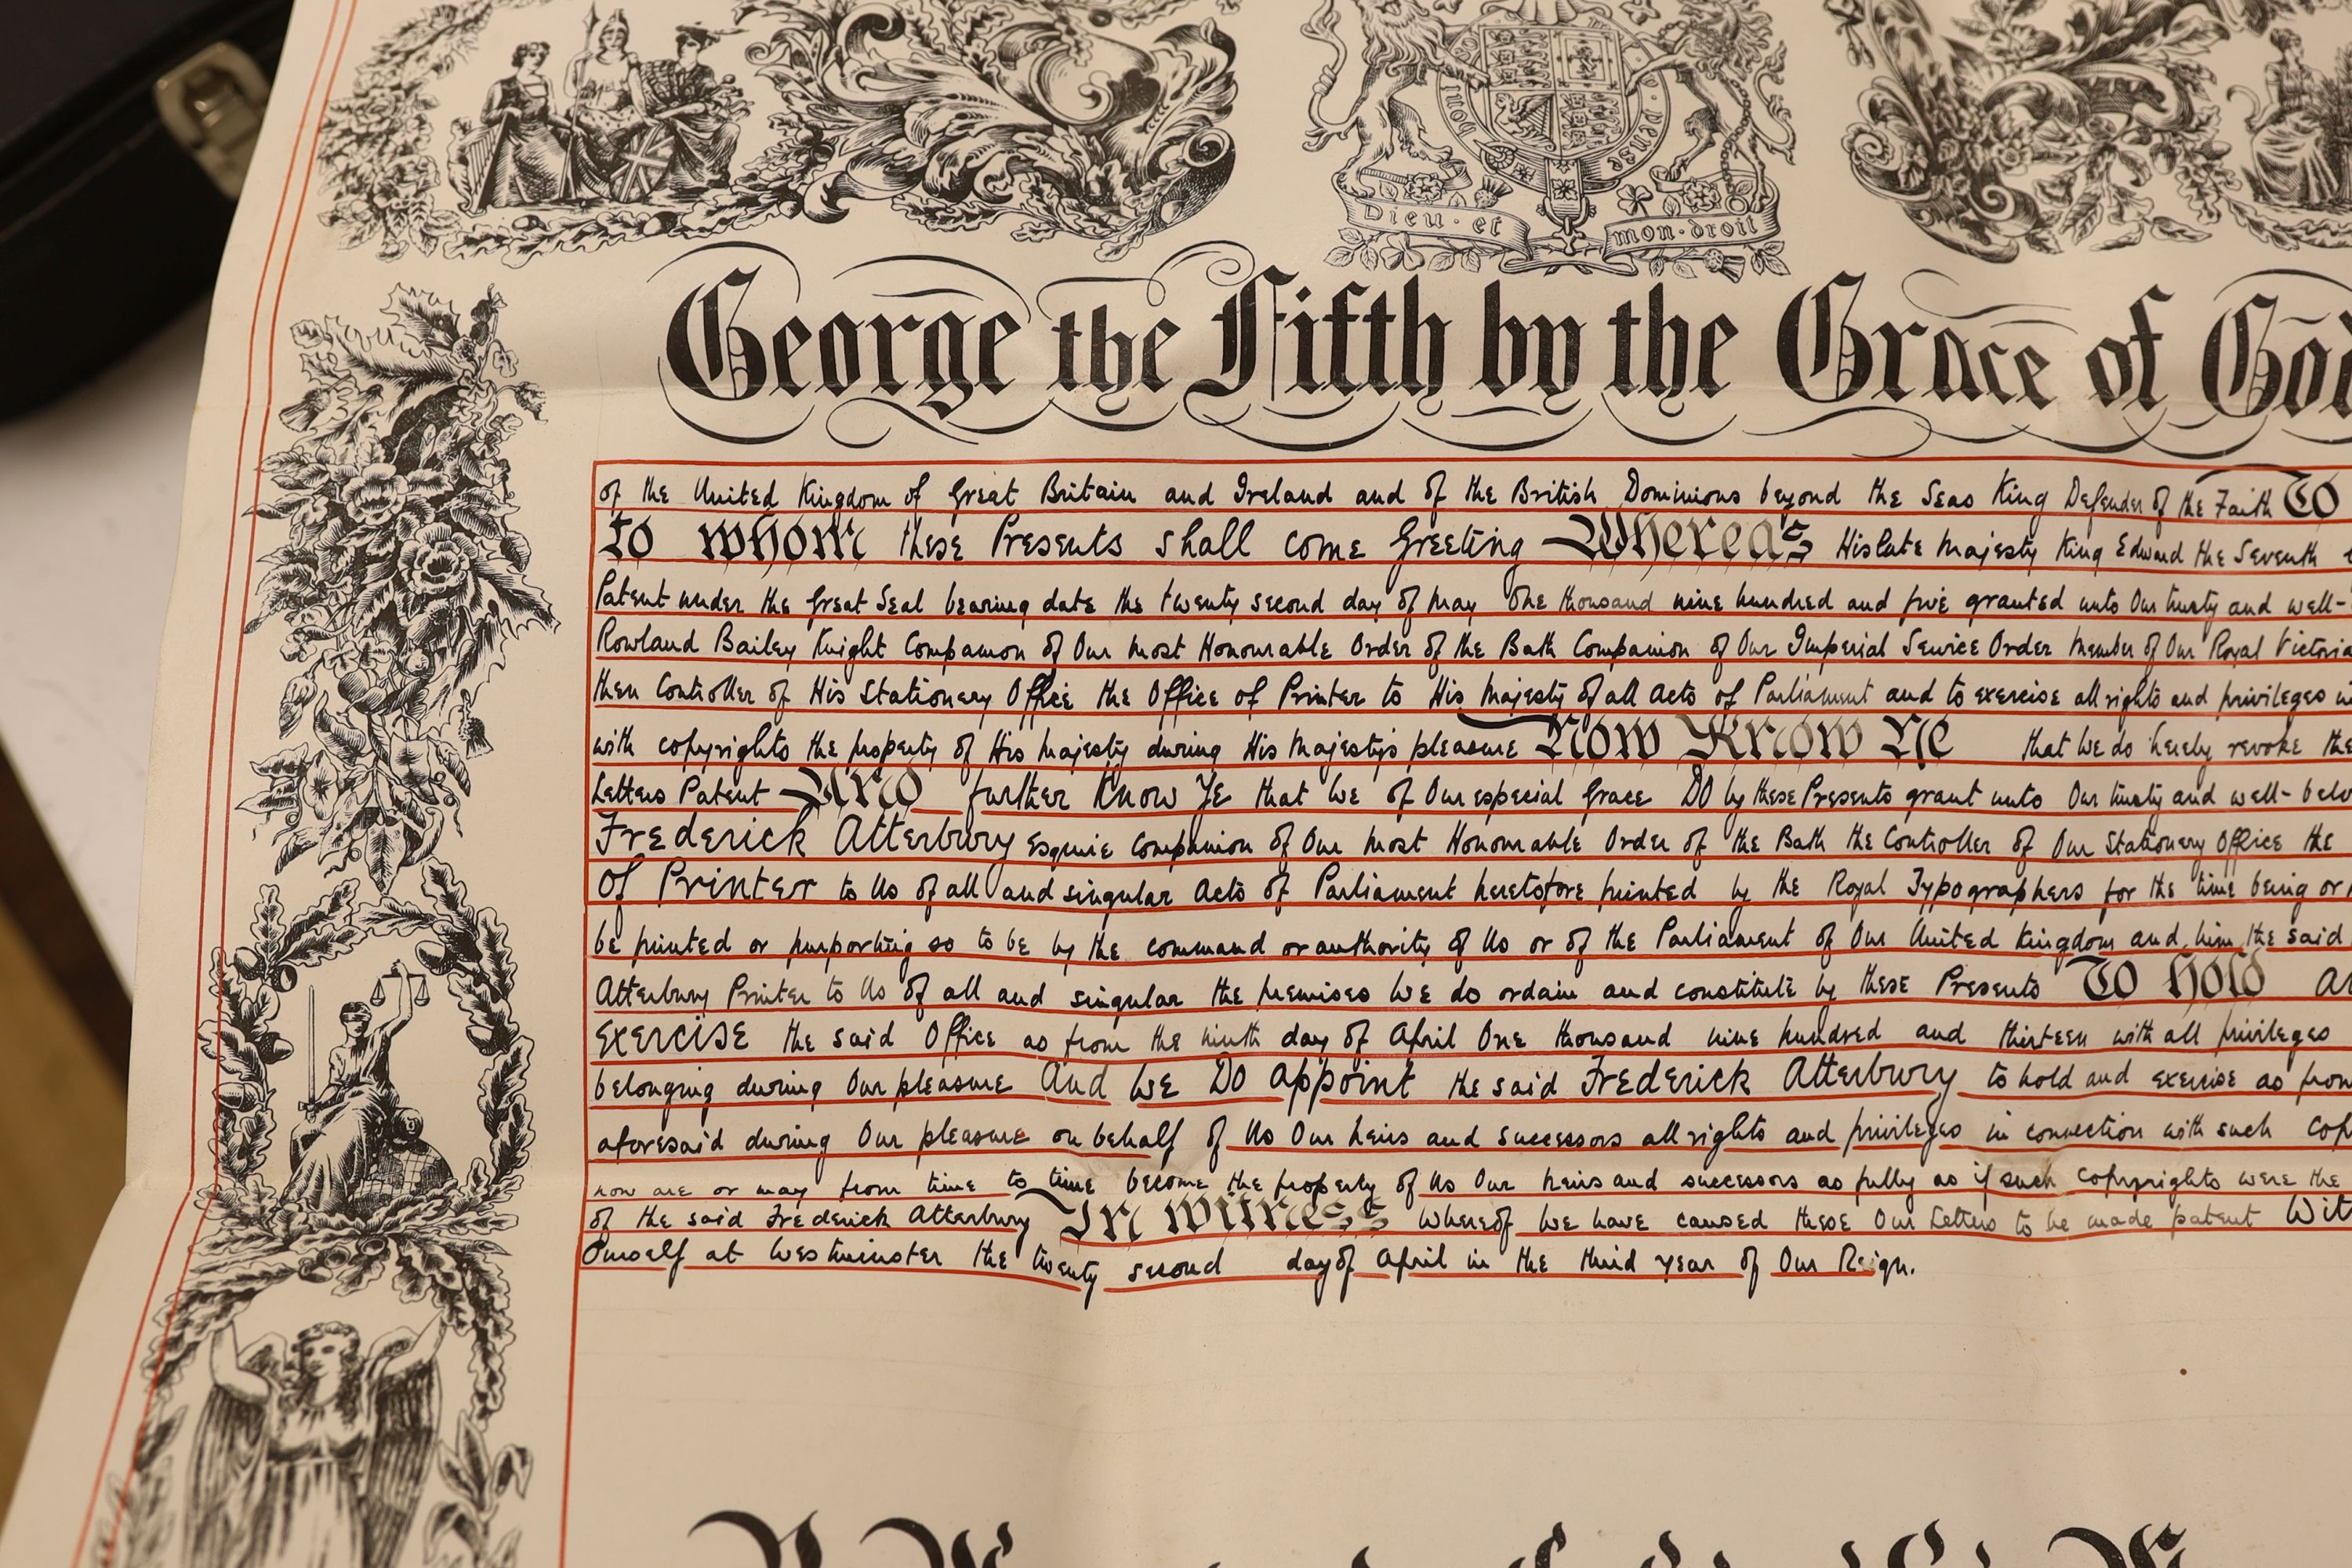 Dieu · et mon · droit
George the Fifth by the Grace of God
of the United Kingdom of Great Britain and Ireland and of the British Dominions beyond the Seas King Defender of the Faith To
to whom these Presents shall come Greeting Whereas His late Majesty King Edward the Seventh
Patent under the Great Seal bearing date the twenty second day of May One thousand nine hundred and five granted unto Our trusty and well-
Rowland Bailey Knight Companion of Our most Honourable Order of the Bath Companion of Our Imperial Service Order Member of Our Royal Victoria
then Controller of His Stationery Office the Office of Printer to His Majesty of all Acts of Parliament and to exercise all rights and privileges in
with copyrights the property of His Majesty during His Majesty's pleasure Now Know Ye that We do hereby revoke the
Letters Patent And further Know Ye that We of Our especial Grace DO by these Presents grant unto Our trusty and well-belo
Frederick Atterbury Esquire Companion of Our most Honourable Order of the Bath the Controller of Our Stationery Office the
of Printer to Us of all and singular Acts of Parliament heretofore printed by the Royal Typographers for the time being or
be printed or purporting so to be by the command or authority of Us or of the Parliament of Our United Kingdom and him the said
Atterbury Printer to Us of all and singular the premises We do ordain and constitute by these Presents To Hold
exercise the said Office as from the ninth day of April One thousand nine hundred and thirteen with all privileges
belonging during Our pleasure And We Do appoint the said Frederick Atterbury to hold and exercise as from
aforesaid during Our pleasure on behalf of Us Our heirs and successors all rights and privileges in connection with such cop
now are or may from time to time become the property of Us Our heirs and successors as fully as if such copyrights were the
of the said Frederick Atterbury In witness Whereof We have caused these Our Letters to be made patent Wit
Ourself at Westminster the twenty second day of April in the third year of Our Reign.